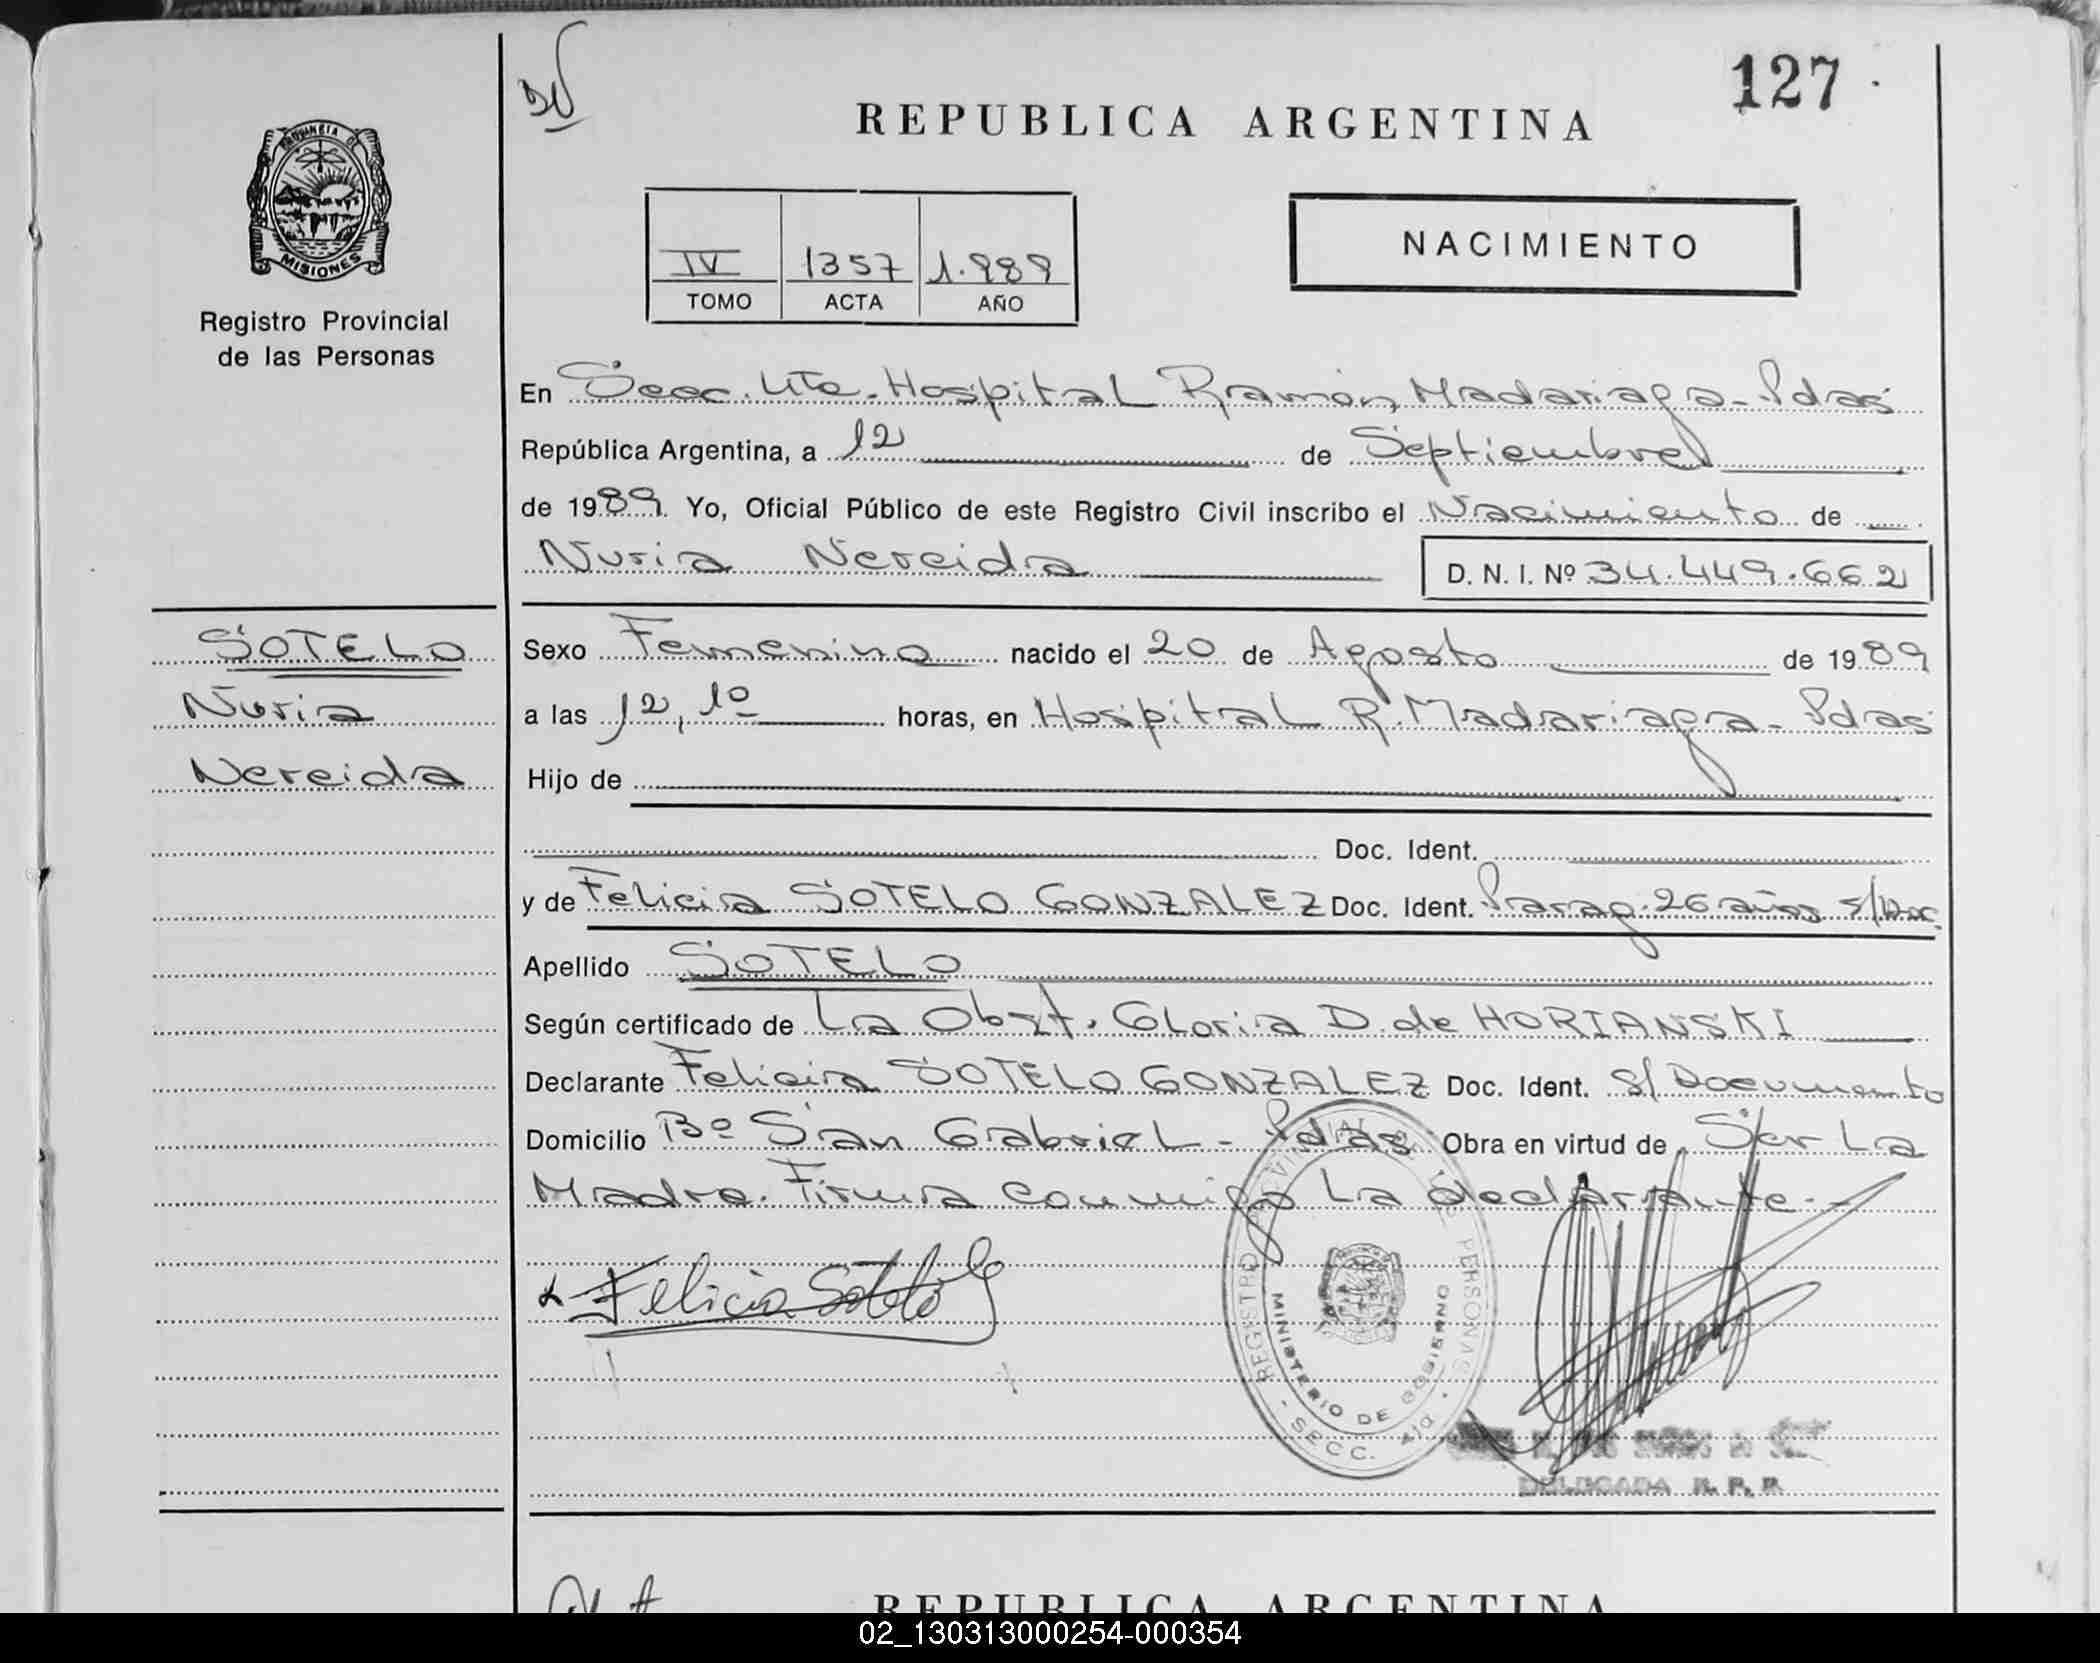 127
REPUBLICA ARGENTINA
PROVINCIA DE
MISIONES
Registro Provincial
de las Personas
NACIMIENTO
IV 1357 1.989
TOMO ACTA AÑO
En Secc. 4ta. Hospital Ramón Madariaga - Pdas
República Argentina, a 12 de Septiembre
de 1989. Yo, Oficial Público de este Registro Civil inscribo el Nacimiento de
Nuria Nereida D. N. I. Nº 34.449.662
SOTELO
Nuria
Nereida
Sexo Femenino nacido el 20 de Agosto de 1989
a las 12,10 horas, en Hospital R. Madariaga - Pdas
Hijo de
Doc. Ident.
y de Felicia SOTELO GONZALEZ Doc. Ident. Parag. 26 años s/Doc.
Apellido SOTELO
Según certificado de La Obst. Gloria D. de HORIANSKI
Declarante Felicia SOTELO GONZALEZ Doc. Ident. s/Documento
Domicilio Bº San Gabriel - Pdas Obra en virtud de Ser La
Madre. Firma conmigo La declarante.-
Felicia Sotelo G
REGISTRO PROVINCIAL DE LAS PERSONAS
MINISTERIO DE GOBIERNO
SECC. 4ta
DELEGADA R. P. P.
REPUBLICA ARGENTINA
02_130313000254-000354